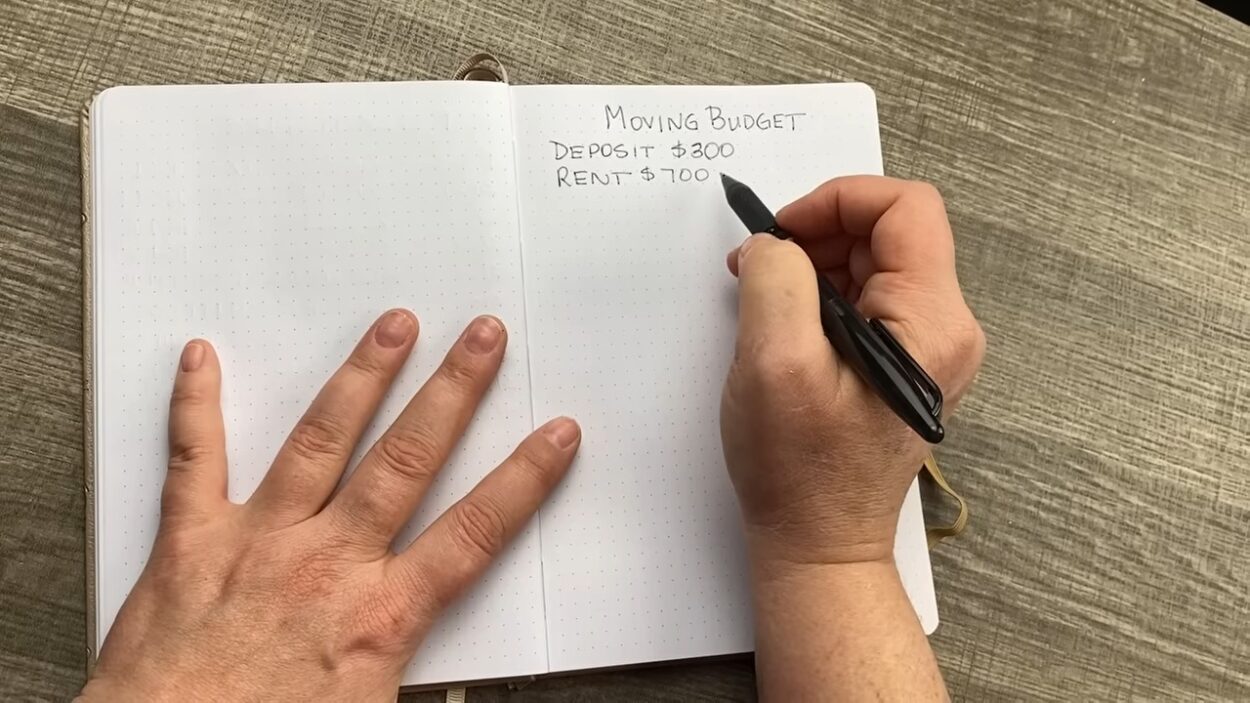 MOVING BUDGET
DEPOSIT $300
RENT $700